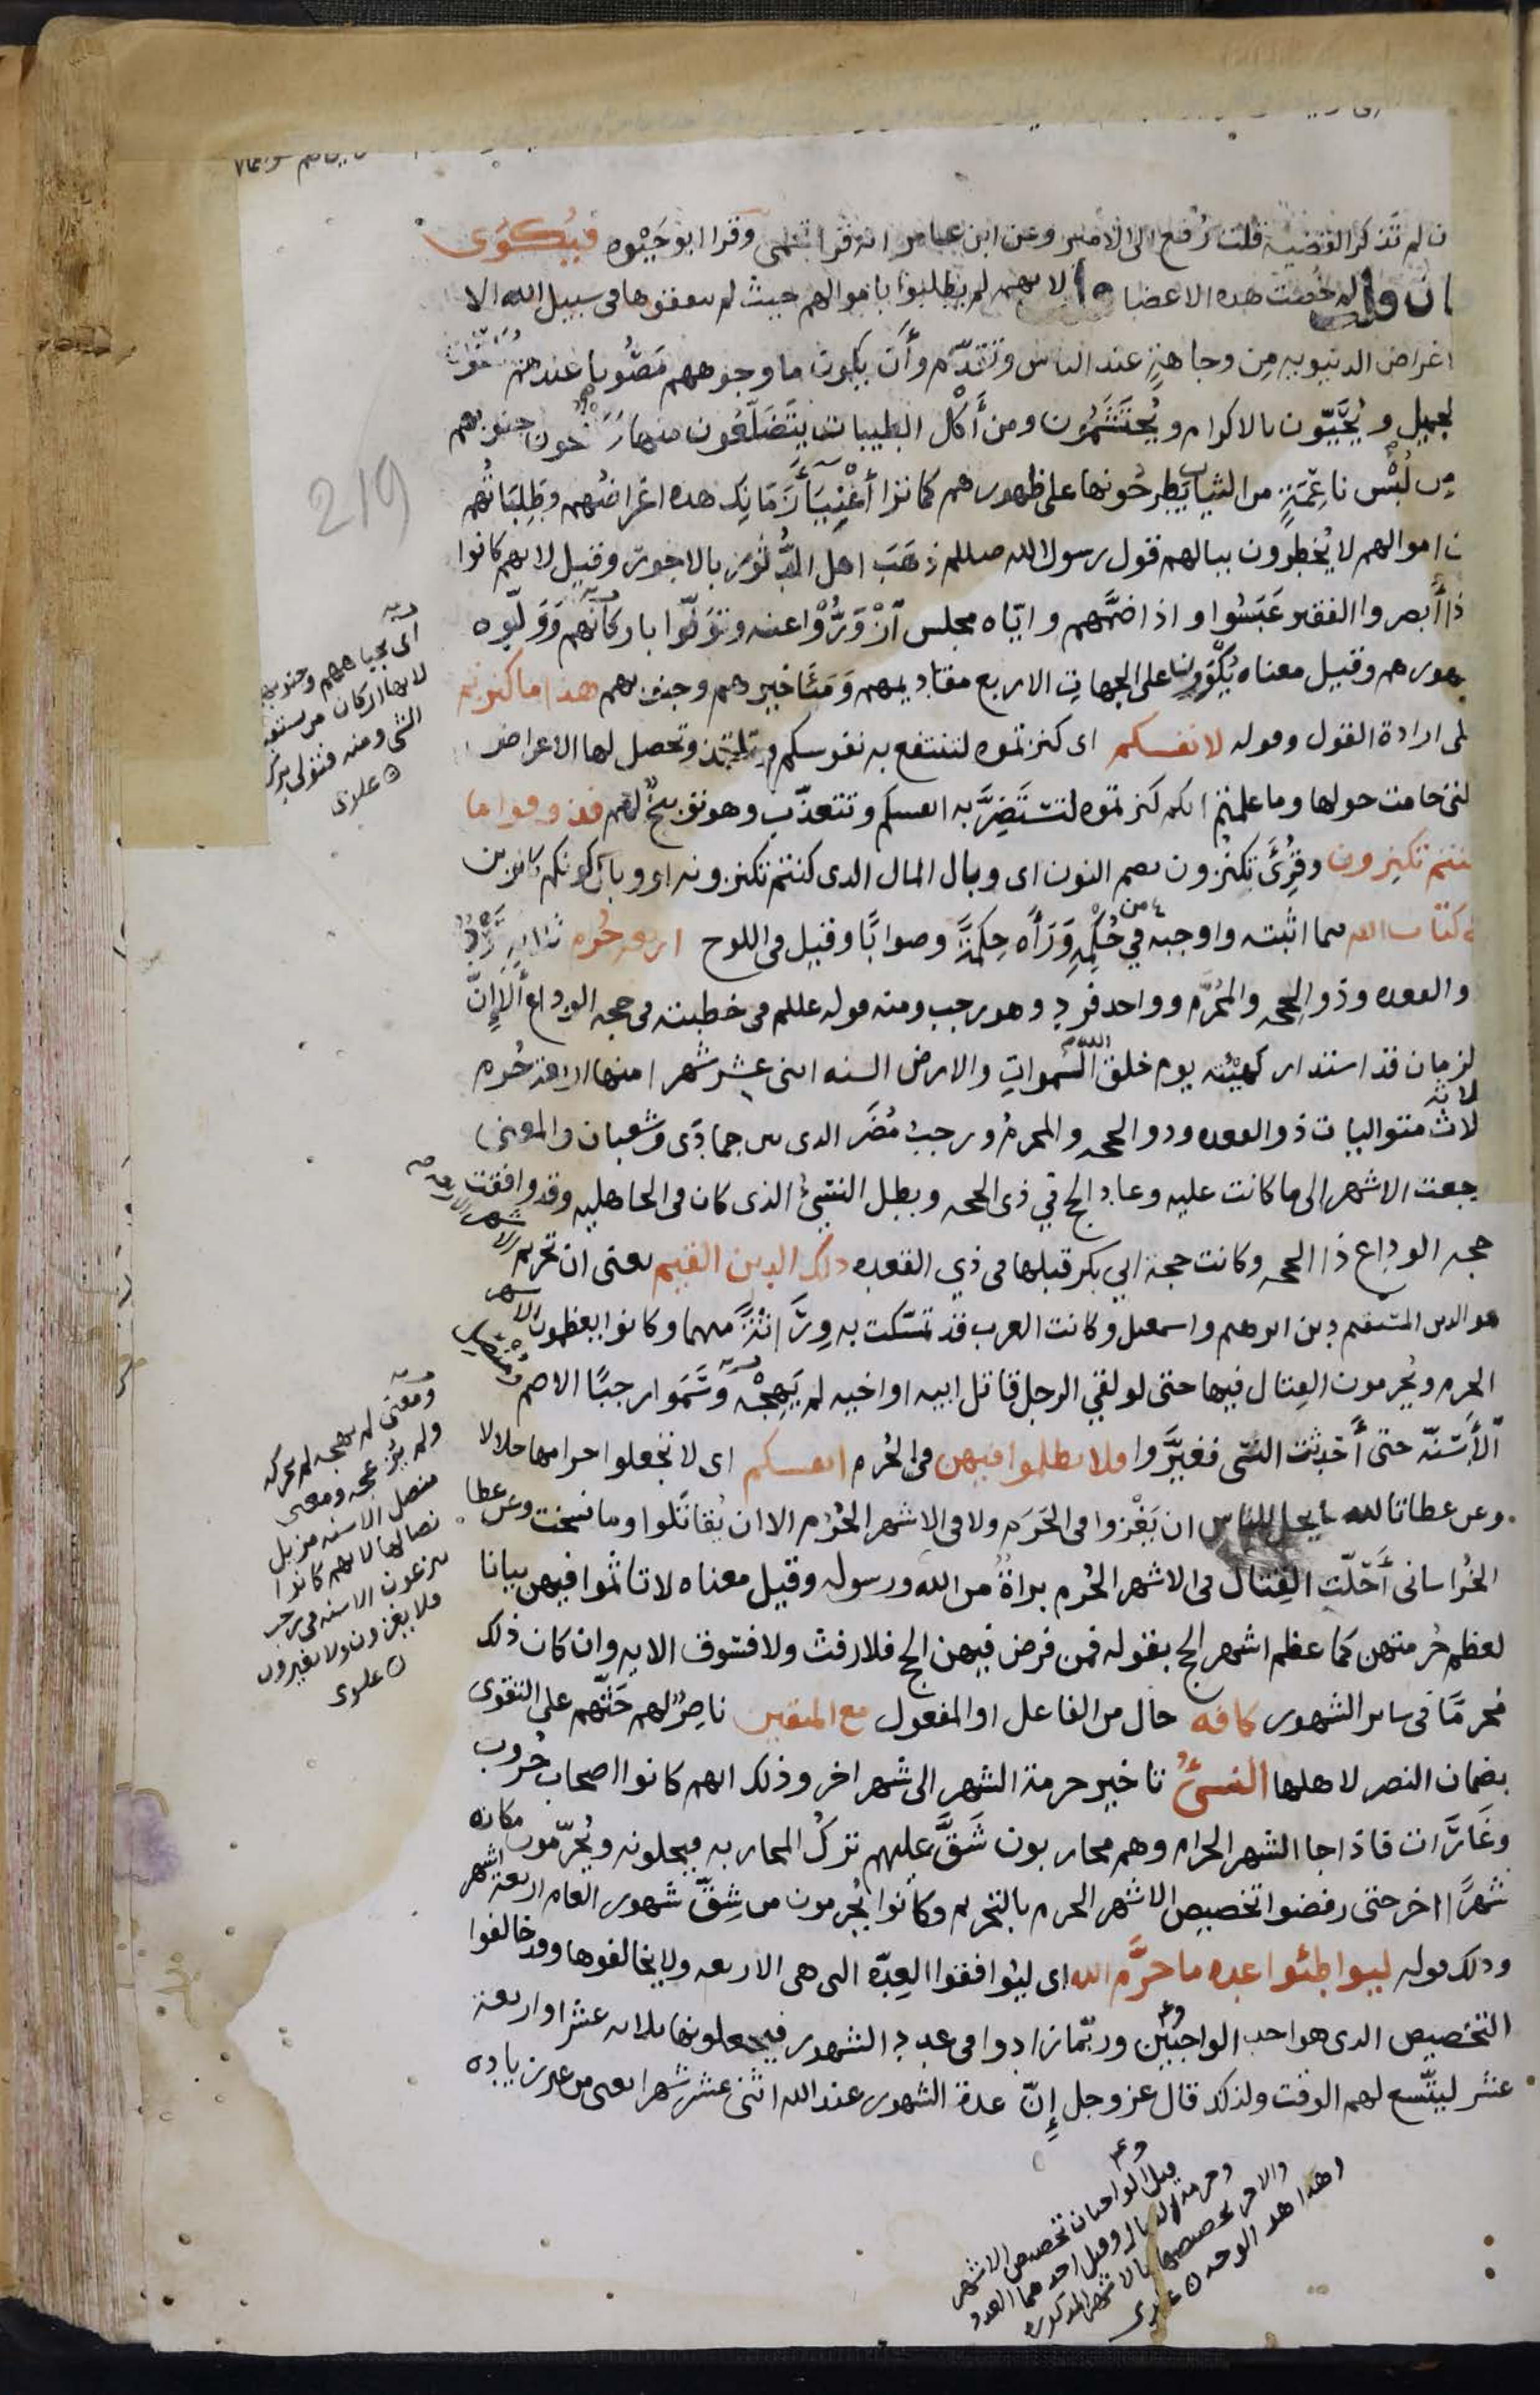 ن لم تذكر القضية قلت رُفع الى الامير وعن ابن عامر انه قرا تحمى وقرا ابو حَيْوه فيُكوى
ان قلت لم خُصت هذه الاعضا قلت لانهم لم يطلبوا باموالهم حيث لم ينفقوها في سبيل الله الا
اغراض الدنيويه مِن وجاهةٍ عند الناس وتقدّم وأن يكون ما وجوههم مَصُونا عندهم يُتلقَّون
لجميل ويُحَيَّون بالاكرام ويُحتشَمُون ومن أكل الطيبات يتضلّعُون منها وَينفخون جنوبهم
مِن لُبْس ناعِمَةٍ من الثياب يطرحُونها على ظهورهم كما نرا أغْنِيَآ زمانِك هذه اغراضُهم وطَلِبَاتُهم
ن اموالهم لا يُخطِرون ببالهم قول رسول الله صللم ذهَبَ اهل الدُّثُور بالاجور وقيل لانهم كانوا
ذا أبصروا الفقير عَبَسُوا واذا ضمَّهم واياه مجلس ازْوَرُّوْا عنه وتوَلّوا باركانهم وَوَلّوه
ظهورهم وقيل معناه يُكْوَوْن على الجهات الاربع مقاديمهم وَمَئَاخيرهم وجنوبهم هذا ما كنزتم
لى ارادة القول وقوله لانفسكم اى كنزتموه لتنتفع به نفوسكم وتلتذ وتحصل لها الاغراض
لتى حامت حولها وما علمتم انكم كنزتموه لتستَضِرَّ به انفسكم وتتعذّب وهو توبيخٌ لهم فذوقوا ما
كنتم تكنزون وقُرِئَ تكنُزون بضم النون اى وبال المال الذى كنتم تكنزونه او وبال كونكم كانزين
فى كتاب الله فيما اثبته واوجبه من حُكمِهِ وَرَأَه حِكمَةً وصوابًا وقيل فى اللوح اربعة حُرم ثلاثه سَرْدٌ
والقعده وذو الحجه والمُحَرَّم وواحد فرد وهو رجب ومنه قوله عللم فى خطبته فى حجه الوداع أَلا إِنَّ
لزمان قد استدار كهيْئته يوم خلق الله السموات والارض السنه اثنى عشر شهرا منها اربعة حُرم
ثلاثة
ثلاث متواليات ذو القعده وذو الحجه والمحرم ورجبُ مُضَر الذى بين جمادَى وشعبان والمعنى
رجعت الاشهر الى ما كانت عليه وعاد الحج فى ذى الحجه وبطل النسئُ الذى كان فى الجاهليه وقد وافقت
حجه الوداع ذا الحجه وكانت حجة ابي بكر قبلها فى ذي القعده ذلك الدين القيم يعنى ان تحريم الاشهر الاربعه
هو الدين المستقيم دين ابرهيم واسمعيل وكانت العرب قد تمسّكت به وِرَاثةً منهما وكانوا يعظمون الاشهر
الحرم ويُحرمون القِتال فيها حتى لو لقي الرجل قاتل ابيه او اخيه لم يَهِجْهُ وسَمّوا رجبًا الاصم ومُنْصِل
الأسِنّه حتى أحدِثت النسئ فغيَّروا فلا تظلموا فيهن فى الحُرم انفسكم اى لا تجعلوا حرامها حلالا
وعن عطا تالله ما يحل للناس ان يَغْزوا فى الحَرَم ولا فى الاشهر الحُرُم الا ان يُقاتَلوا وما نسخت وعن عطا
الخُراسانى أُحلّت القِتال فى الاشهر الحُرم براةٌ من الله ورسوله وقيل معناه لا تاثموا فيهن بيانا
لعظم حُرمتهن كما عظم اشهر الحج بقوله فمن فرض فيهن الحج فلا رفث ولا فسوق الايه وان كان ذلك
مُحرمًا فى ساير الشهور كافه حال من الفاعل او المفعول مع المتقين ناصرٌ لهم حَثّهم على التقوى
بضمان النصر لاهلها النسئُ تاخير حرمة الشهر الى شهر اخر وذلك انهم كانوا اصحاب حُروب
وغَارَات فاذا جا الشهر الحرام وهم محاربون شَقَّ عليهم تركُ المحاربه فيحلونه ويُحرّمون مكانه
شهرًا اخر حتى رفضوا تخصيص الاشهر الحرم بالتحريم وكانوا يُحرمون من شِقّ شهور العام اربعة اشهر
وذلك قوله ليواطئوا عده ما حرَّم الله اى ليُوافقوا العِدّه التى هى الاربعه ولا يخالفوها وقد خالفوا
التخصيص الذى هو احد الواجبَيْن وربّما زادوا فى عدد الشهور فيجعلونها ثلاثه عشر او اربعة
عشر ليتّسع لهم الوقت ولذلك قال عز وجل إنّ عدة الشهور عند الله اثنى عشر شهرا يعنى من غير زياده
219
اى بجباههم وجنوبهم
لانها اركان من
الشى ومنه فتولى بركنه
علوى
ومعنى لم يهجه لم يحركه
ولم يُزعجه ومعنى
منصل الاسنه مزيل
نصالها لانهم كانوا
ينزعون الاسنه فى رجب
فلا يغزون ولا يغيرون
علوى
قيل الواجبان تخصيص الاشهر
وحرمة القتال وقيل احدهما العدد
والاخر تخصيصها بالاشهر المذكوره
وهذا هو الوجه علوى